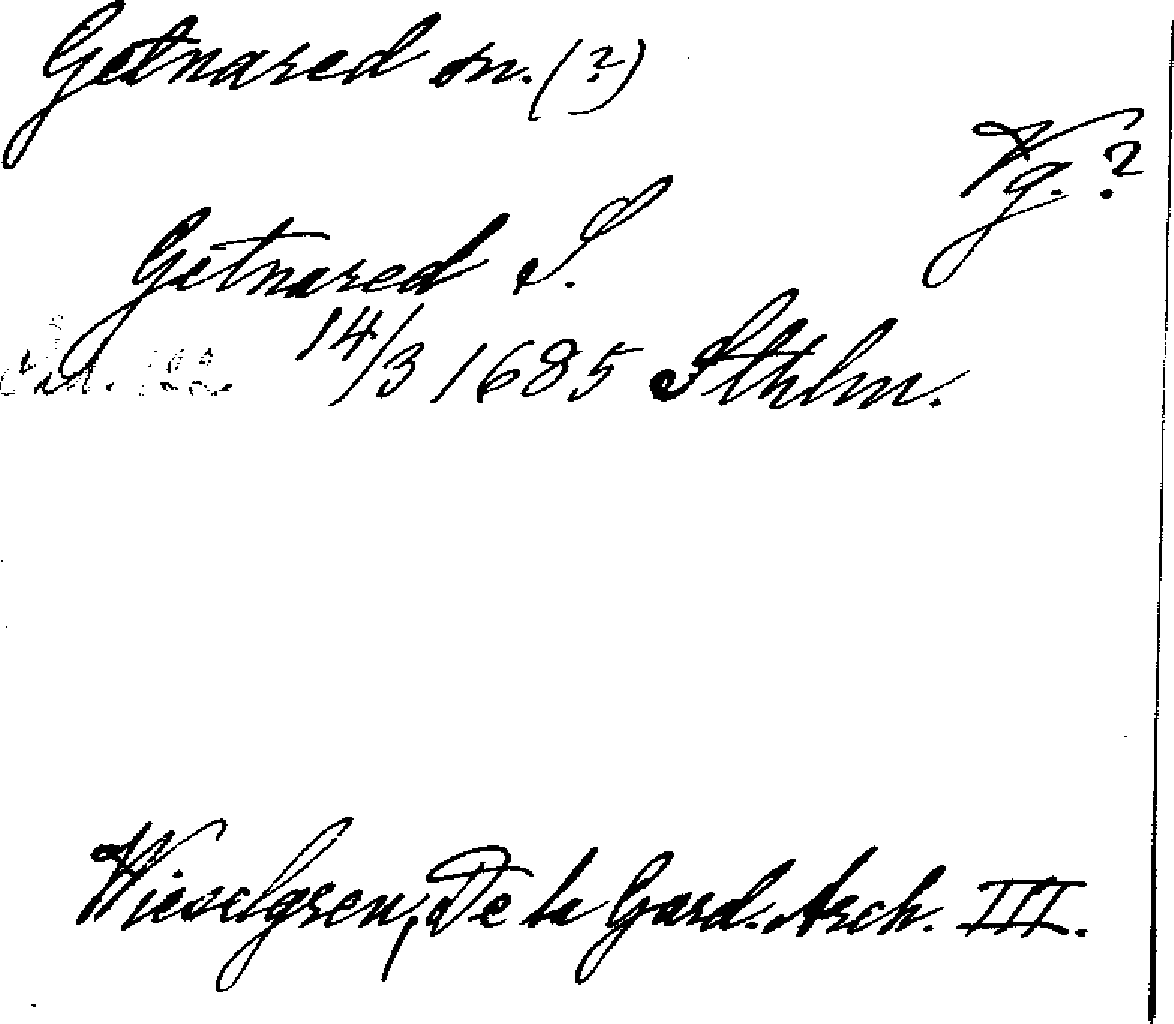 Getnared on. (?)
Vg. ?
Getnared S.
14/3 1685 Sthlm.
Wieselgren, De la Gard. Arch. III.